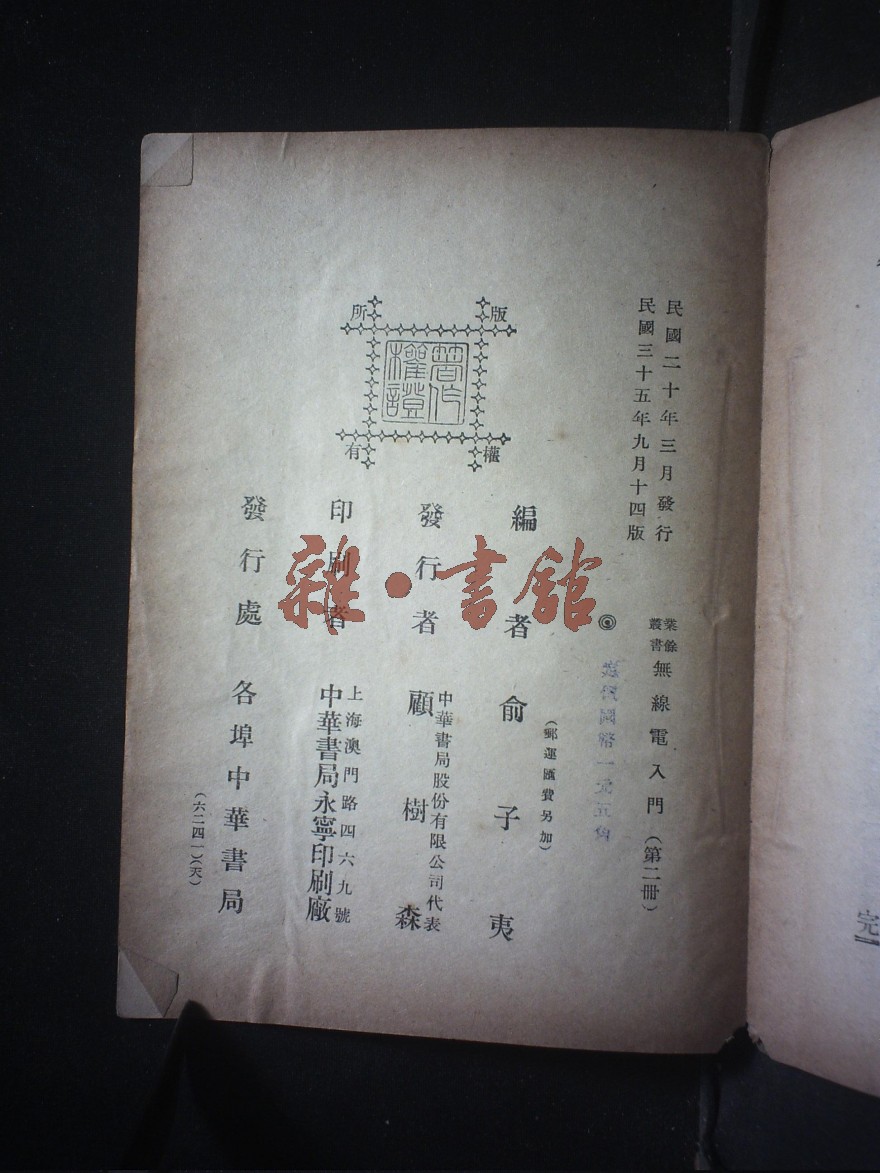 民國二十年三月發行
民國三十五年九月十四版
業餘叢書
無線電入門(第二冊)
定價國幣一元五角
(郵運匯費另加)
版權所有
著作權證
編者 俞子夷
中華書局股份有限公司代表
發行者 顧樹森
上海澳門路四六九號
印刷者 中華書局永寧印刷廠
發行處 各埠中華書局
(六二四一)(天)
雜·書館
完